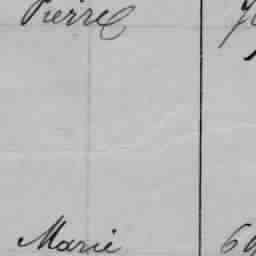 Pierre
Marie 69